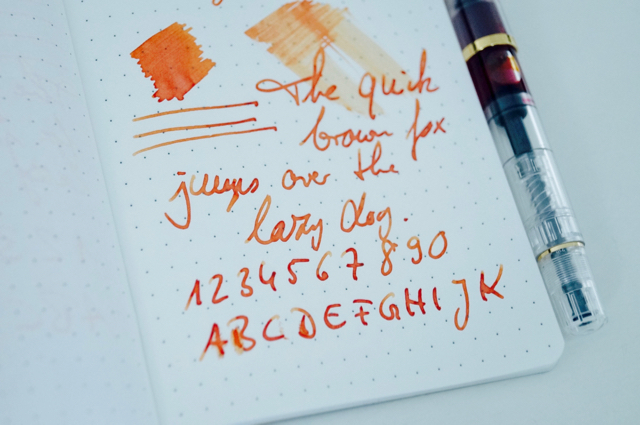 The quick
brown fox
jumps over the
lazy dog.
1 2 3 4 5 6 7 8 9 0
A B C D E F G H I J K